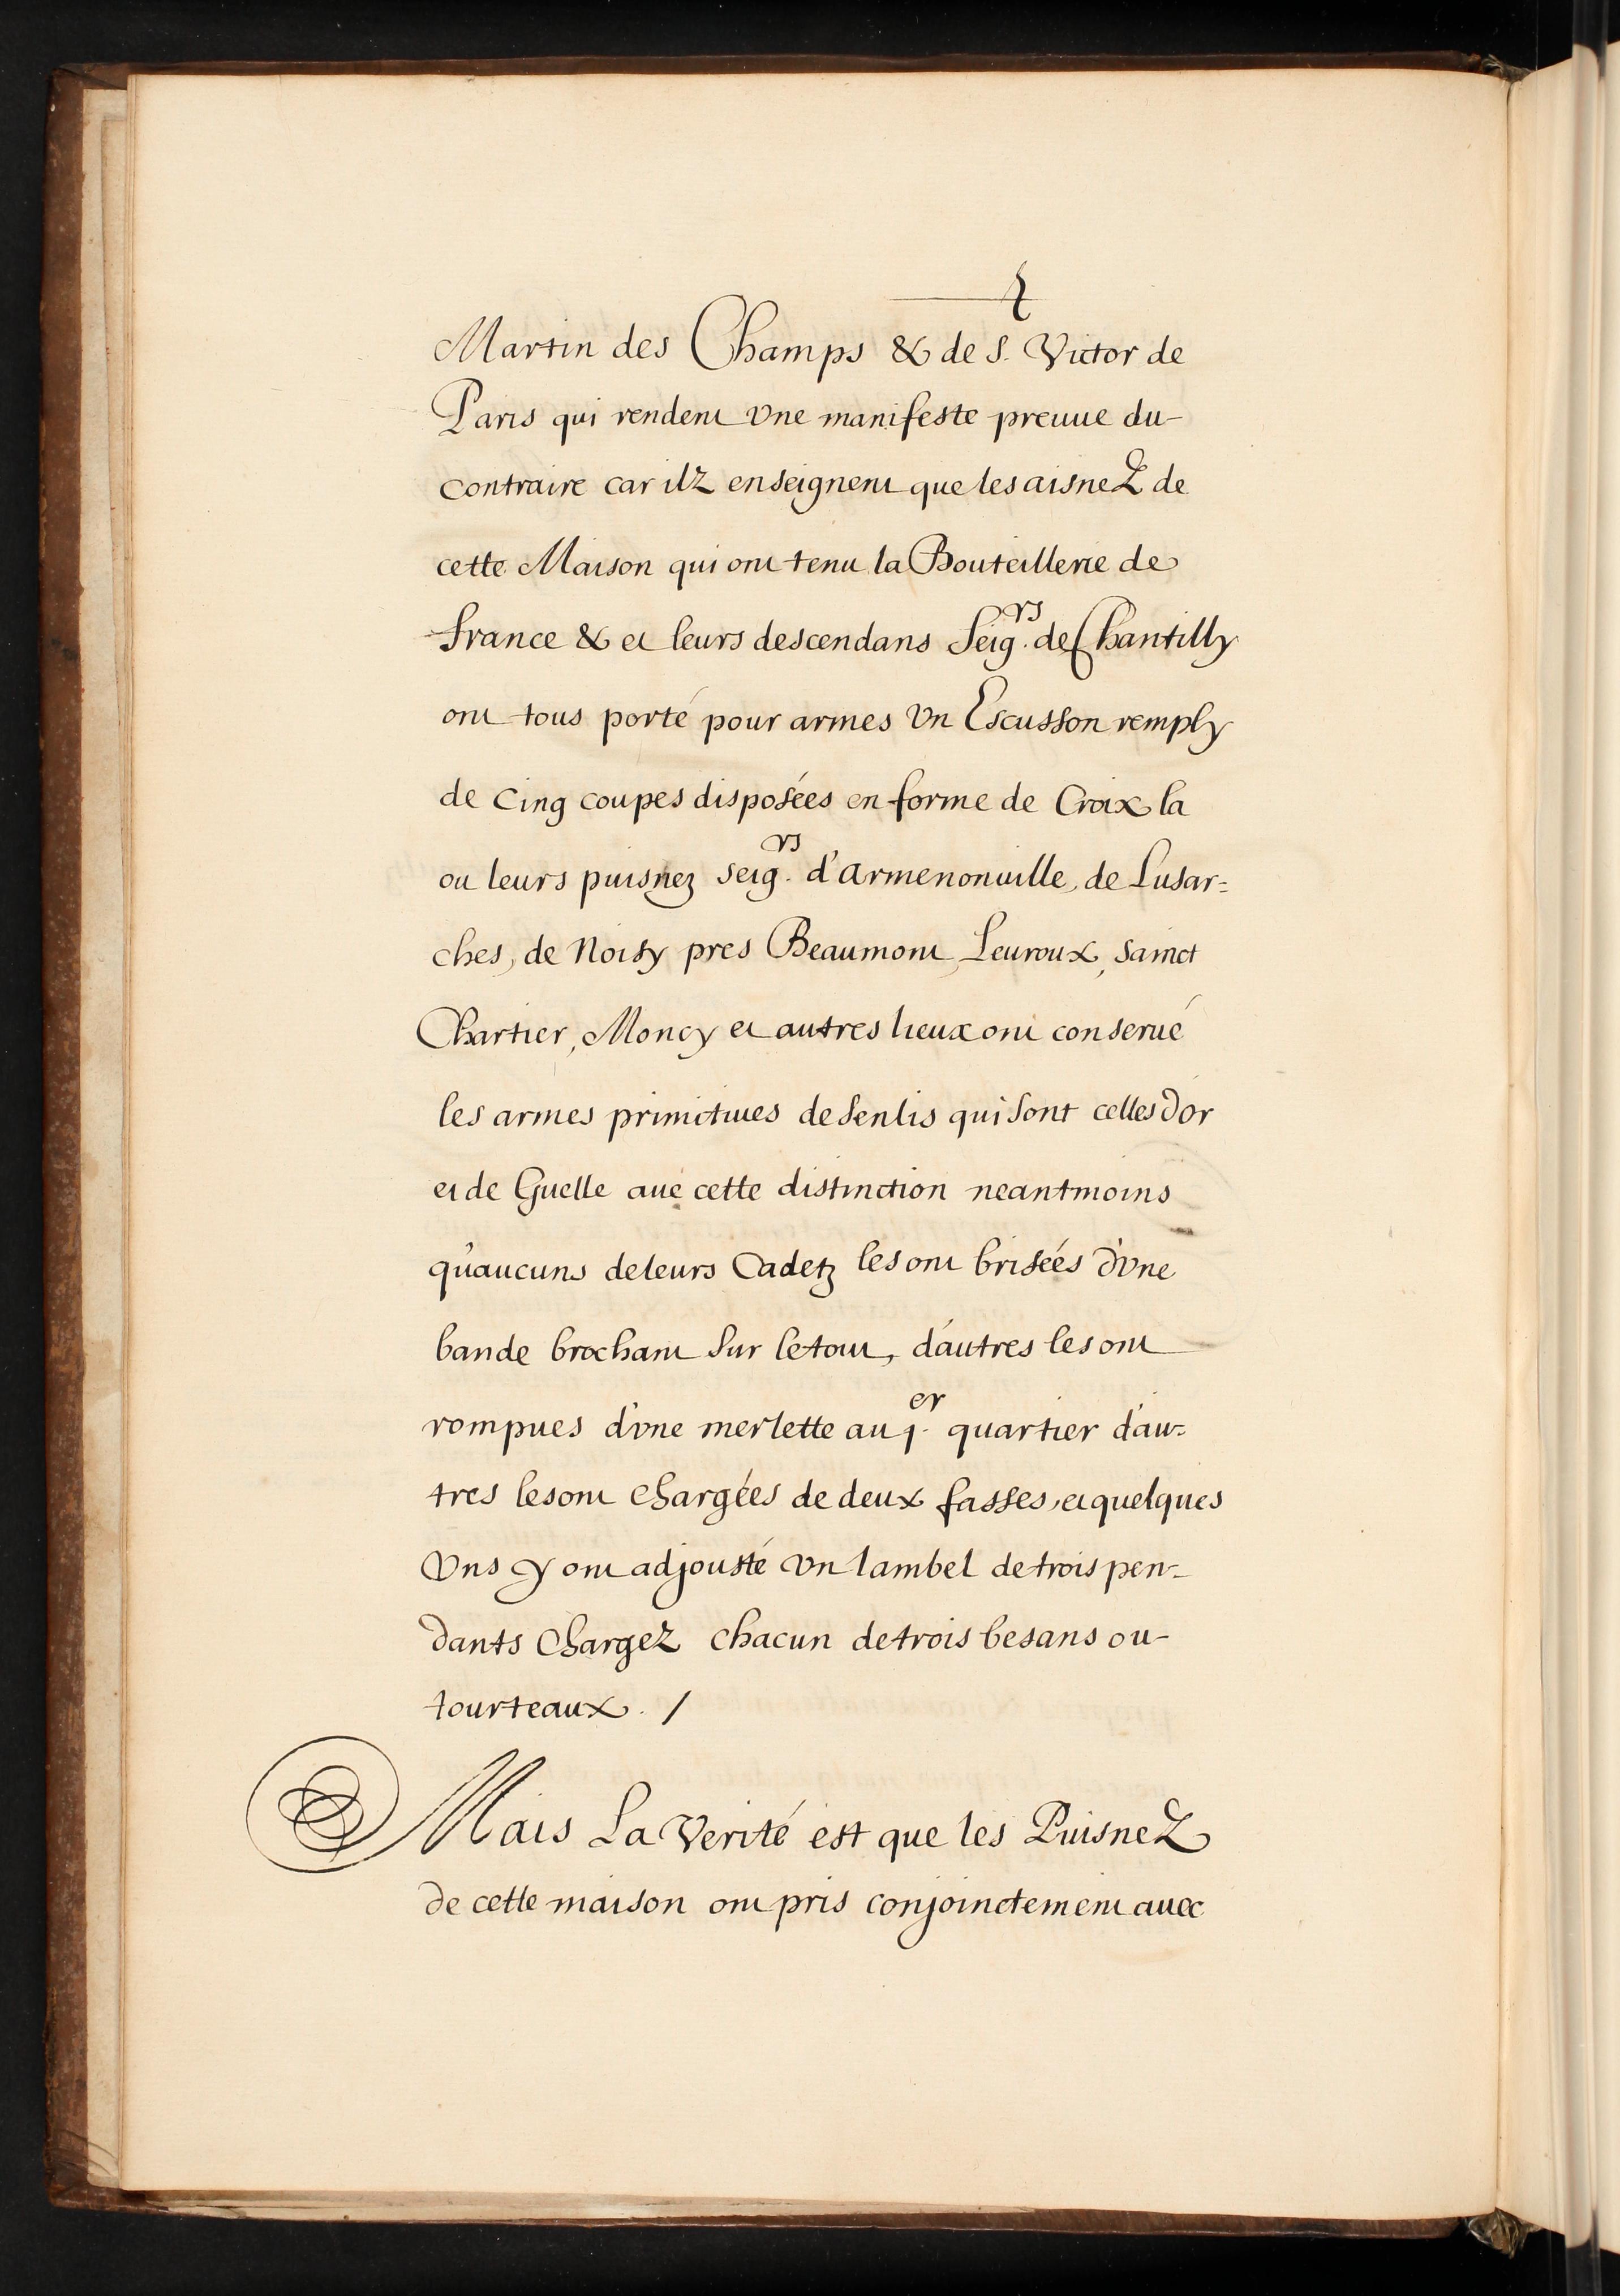 Martin des Champs & de S.t Victor de
Paris qui rendent Vne manifeste preuue du-
contraire car ilz enseignent que les aisnez de
cette Maison qui ont tenu la Bouteillerie de
france & et leurs descendans Seig.rs de Chantilly
ont tous porté pour armes Vn Escusson remply
de Cinq coupes disposées en forme de Croix la
ou leurs puisnez seig.rs d'armenonuille, de Lusar=
ches, de Noisy pres Beaumont, Leuroux, sainct
Chartier, Moncy et autres lieux ont conserué
les armes primictiues de Senlis qui sont celles d'or
et de Guelle aue cette distinction neantmoins
qu'aucuns de leurs Cadetz les ont brisées d'Vne
bande brochant sur le tout, d'autres les ont
rompues d'vne merlette au j.er quartier d'au=
tres les ont chargées de deux fasses, et quelques
Vns y ont adjousté Vn lambel de trois pen-
dants Chargez chacun de trois besans ou-
tourteaux. /
Mais La Verité est que les Puisnez
de cette maison ont pris conjoinctement auec